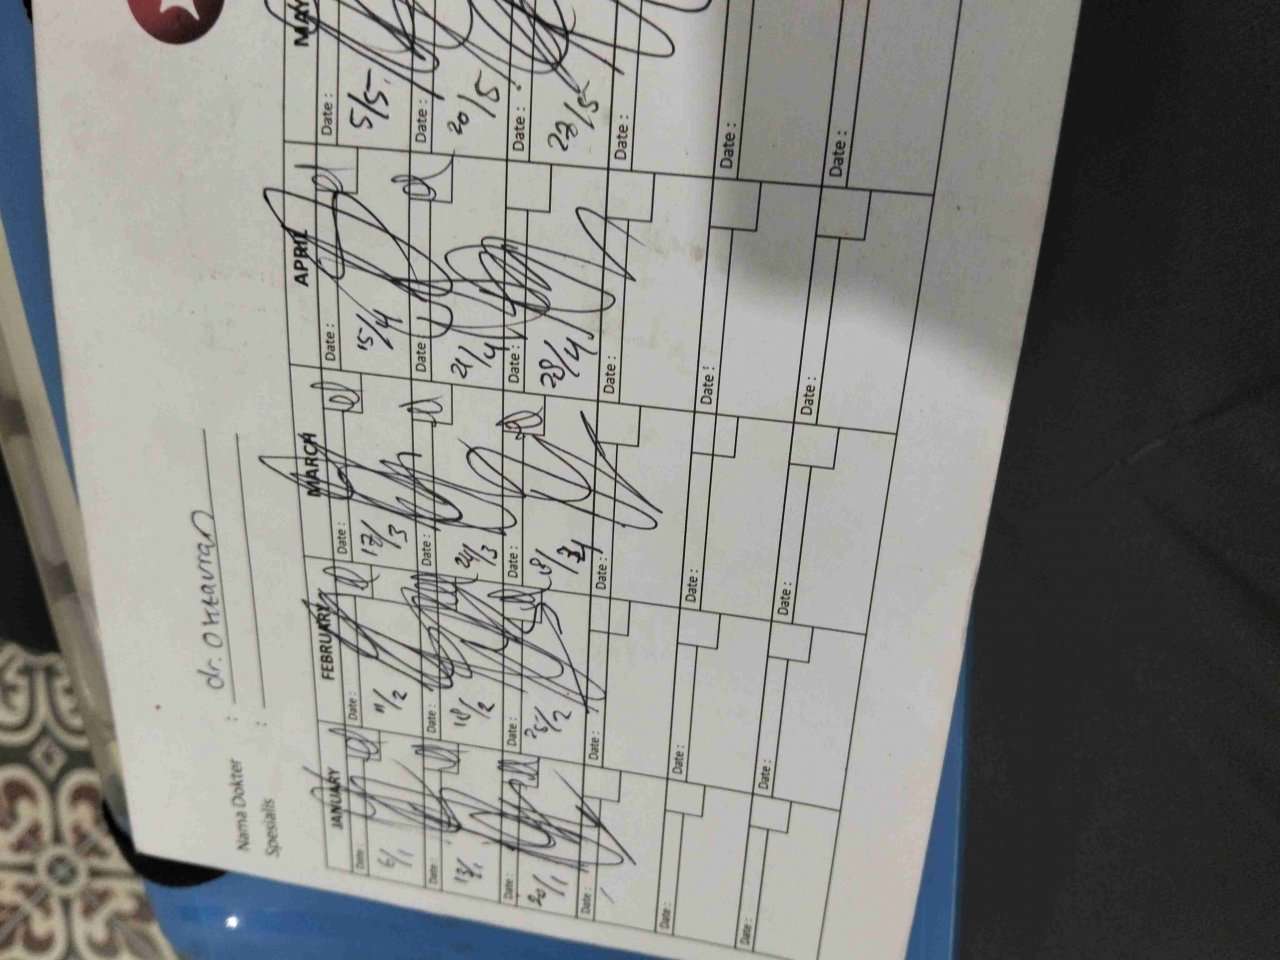 Nama Dokter : dr. Oktavian
Spesialis :
JANUARY FEBRUARY MARCH APRIL MAY
Date : Date : Date : Date : Date :
6/1 11/2 17/3 15/4 5/5
Date : Date : Date : Date : Date :
13/1 18/2 24/3 21/4 20/5
Date : Date : Date : Date : Date :
20/1 25/2 28/4
Date : Date : Date : Date : Date :
Date : Date : Date : Date : Date :
Date : Date : Date : Date : Date :